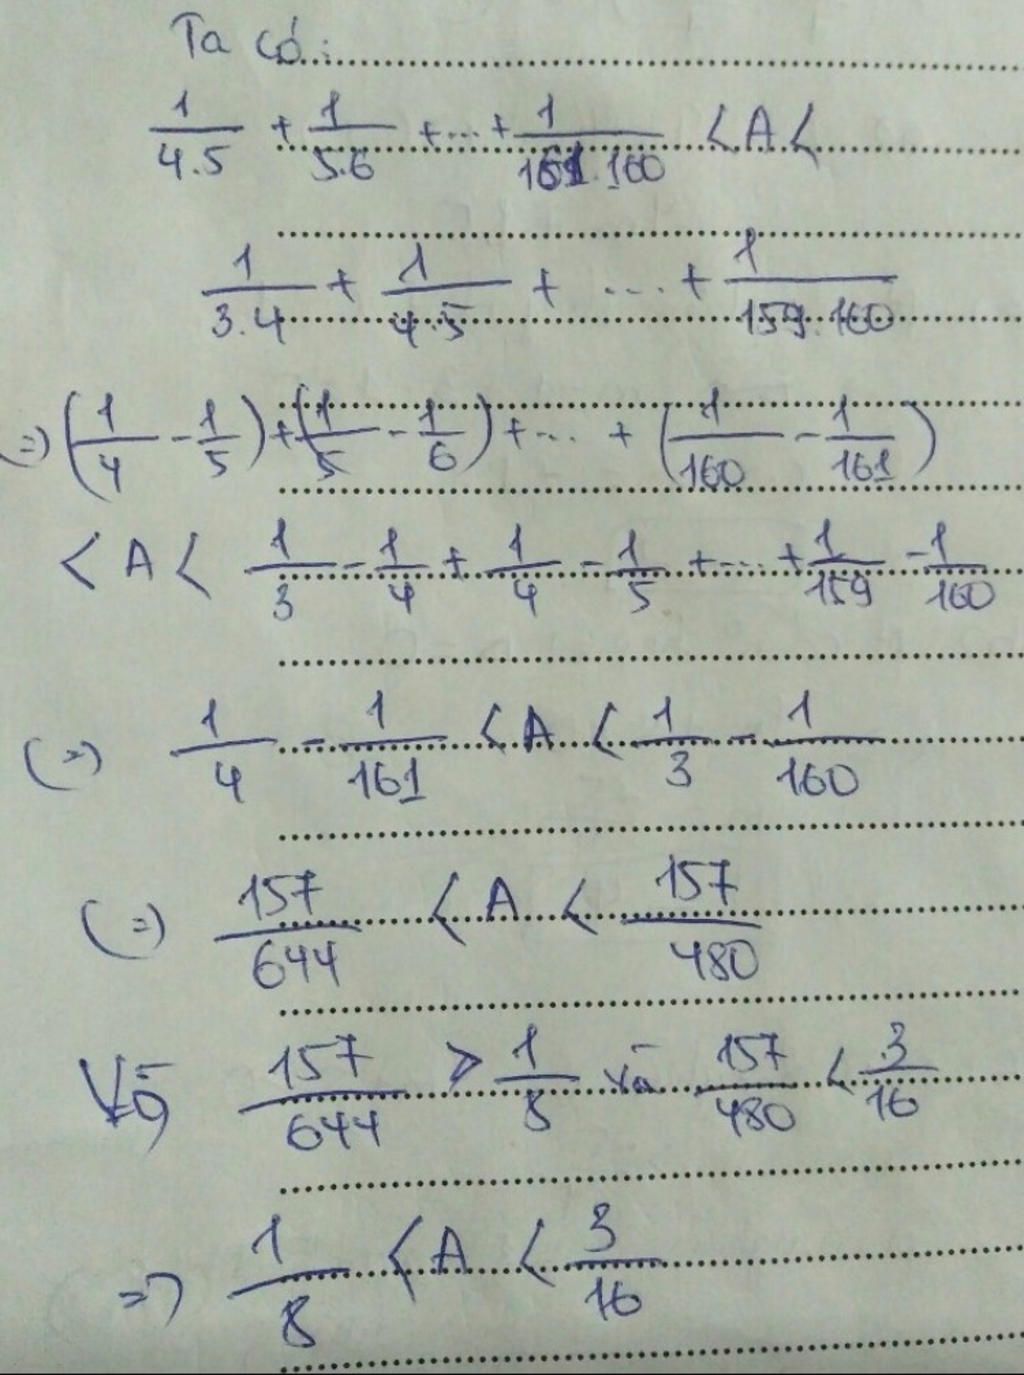 Ta có:
1/4.5 + 1/5.6 + ... + 1/161.160 < A <
1/3.4 + 1/4.5 + ... + 1/159.160
=) (1/4 - 1/5) + (1/5 - 1/6) + ... + (1/160 - 1/161)
< A < 1/3 - 1/4 + 1/4 - 1/5 + ... + 1/159 - 1/160
(=) 1/4 - 1/161 < A < 1/3 - 1/160
(=) 157/644 < A < 157/480
157/644 > 1/8 và 157/480 < 3/16
=) 1/8 < A < 3/16